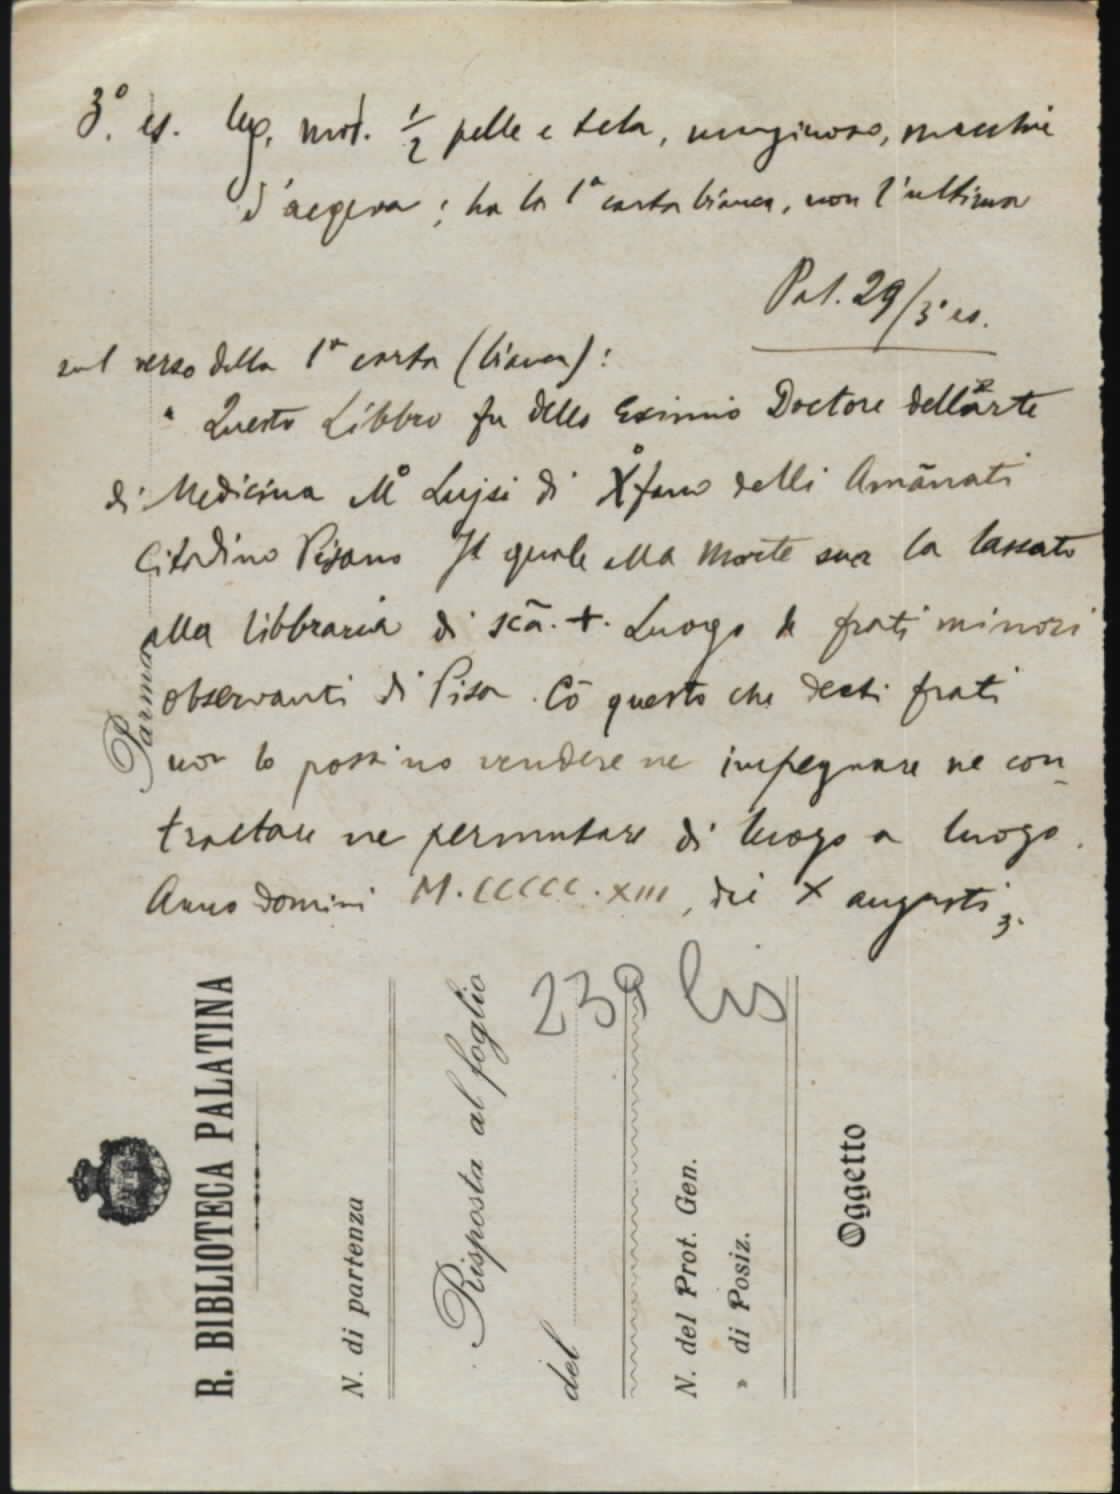 3°. es. leg. mod. ½ pelle e tela, marginoso, macchie
d'acqua; ha la 1ª carta bianca, non l'ultima
Pal. 29/3° es.
sul verso della 1ª carta (bianca):
" Questo Libbro fu dello Eximio Doctore dellarte
di Medicina M° Luijsi di X°fano delli Amānati
Citadino Pisano Il quale alla Morte sua la lassato
alla libbraria di scā. +. Luogo de frati minori
observanti di Pisa. Cō questo che decti frati
non lo possino vendere ne impegnare ne con
tractare ne permutare di luogo a luogo.
Anno domini M.CCCCC.XIII, die X augusti
239 bis
Parma
R. BIBLIOTECA PALATINA
N. di partenza
Risposta al foglio
del
N. del Prot. Gen.
» di Posiz.
Oggetto